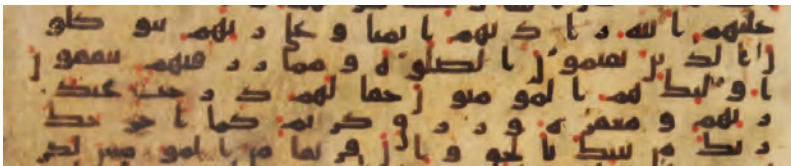 عليهم ايته زادتهم ايمنا و على ربهم يتوكلو
ن الذين يقيمون الصلوة و مما رزقنهم ينفقون
اولئك هم المومنون حقا لهم درجت عند
ربهم و مغفرة و رزق كريم كما اخرجك
ربك من بيتك بالحق و ان فريقا من المومنين لكر